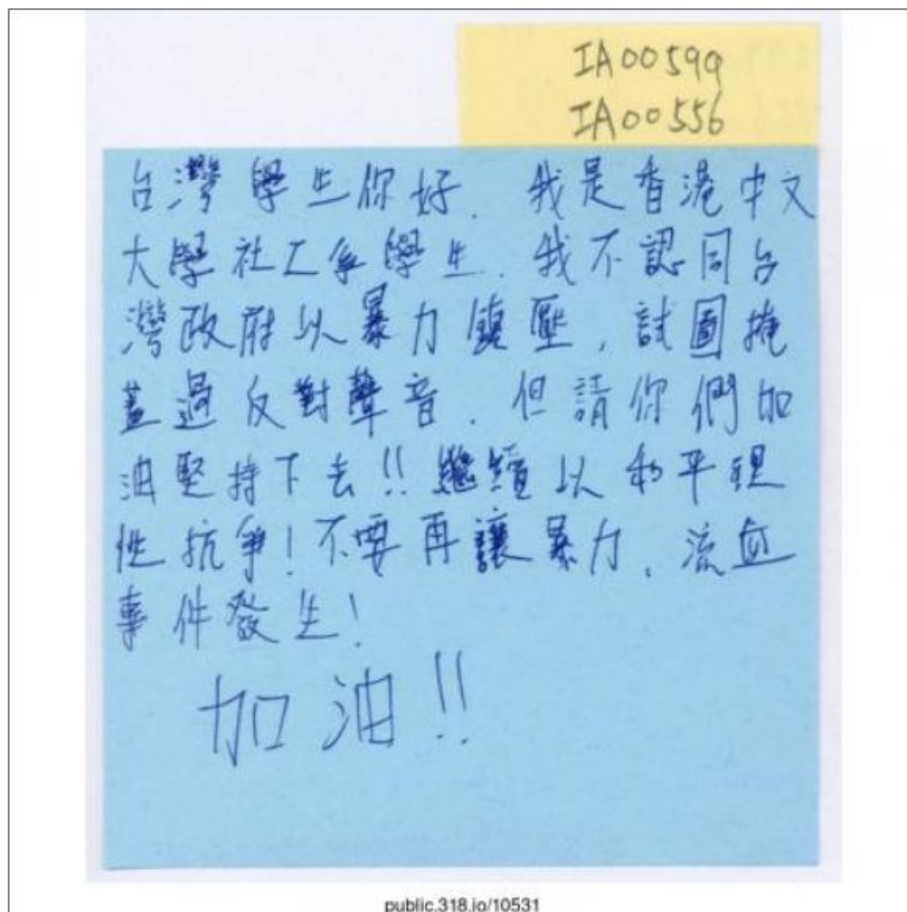 IA00599
IA00556
台灣學生你好．我是香港中文
大學社工系學生．我不認同台
灣政府以暴力鎮壓，試圖掩
蓋過反對聲音．但請你們加
油堅持下去!!繼續以和平理
性抗爭!不要再讓暴力、流血
事件發生!
加油!!
public.318.io/10531